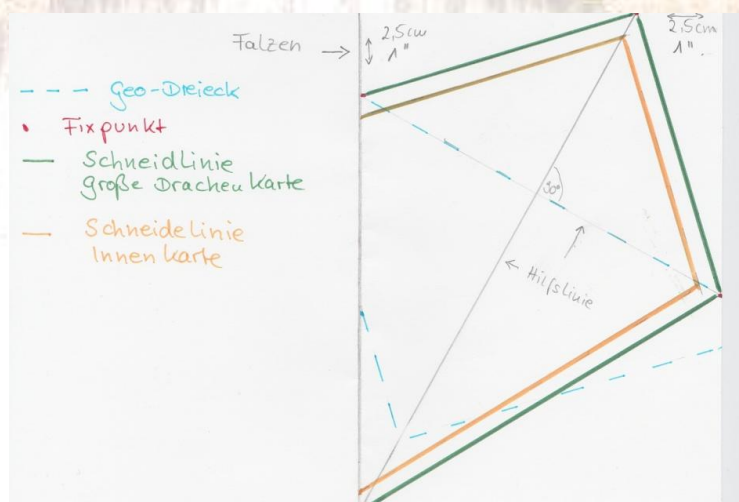 Falzen
2,5cm
1"
2,5cm
1".
Geo-Dreieck
Fixpunkt
Schneidlinie
große Drachen Karte
Schneidelinie
Innenkarte
90°
Hilfslinie